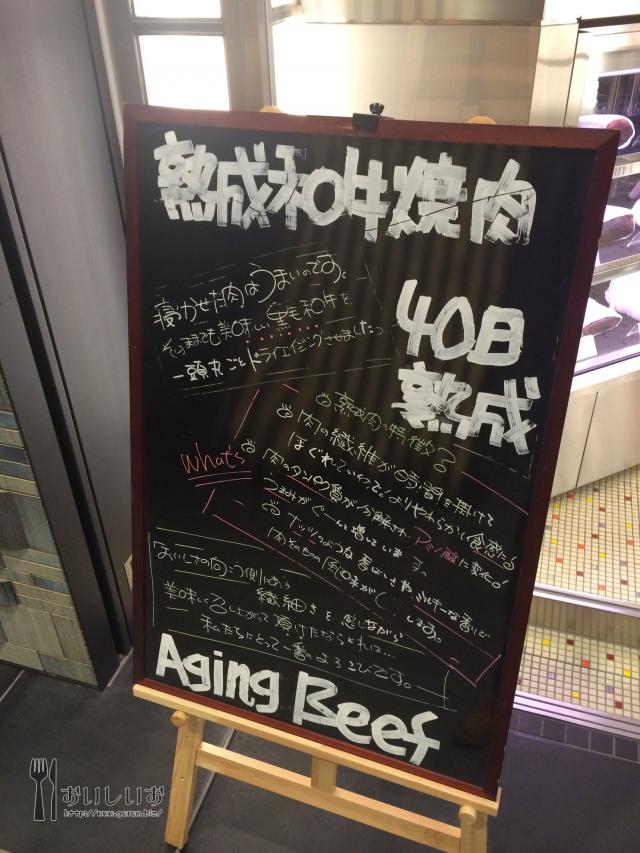 熟成和牛焼肉
寝かせた肉はうまいのです。
そのままでも美味しい黒毛和牛を
一頭丸ごとドライエイジングさせました。
40日
熟成
What's
熟成肉の特徴
肉の繊維が時間を掛けて
ほぐれていって。よりやわらかい食感になる
肉のタンパク質が分解され、アミノ酸に変化!
うまみがぐーんと増しています。
ナッツのような香ばしさやミルキーな香りで
肉そのものの風味がします。
おいしさの向こう側にある
繊細さを感じながら
美味しく召し上がって頂けたならそれは…
私たちにとって一番のよろこびです。
Aging Beef
おいしいお
http://www.gurum.biz/